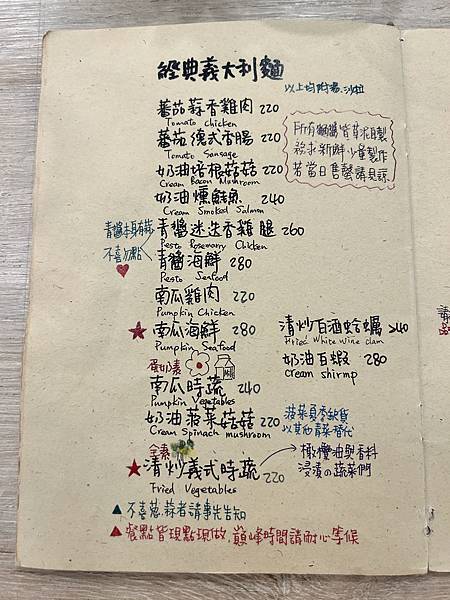 經典義大利麵
以上均附湯.沙拉
蕃茄蒜香雞肉 220
Tomato chicken
蕃茄德式香腸 220
Tomato Sausage
奶油培根菇菇 220
Cream Bacon Mushroom
奶油燻鮭魚 240
Cream Smoked Salmon
青醬迷迭香雞腿 260
Pesto Rosemary Chicken
青醬海鮮 280
Pesto Seafood
南瓜雞肉 220
Pumpkin Chicken
南瓜海鮮 280
Pumpkin Seafood
蛋奶素
南瓜時蔬 240
Pumpkin Vegetables
奶油菠菜菇菇 220
Cream Spinach mushroom
全素
清炒義式時蔬 220
Fried Vegetables
所有麵醬皆草泥自製
務求新鮮少量製作
若當日售罄請見諒
青醬本身有蒜
不喜勿點
清炒白酒蛤蠣 240
Fried White Wine clam
奶油白蝦 280
cream shirmp
菠菜夏季缺貨
以其他青菜替代
橄欖油與香料
浸漬の蔬菜們
▲不喜蔥.蒜者請事先告知
▲餐點皆現點現做.巔峰時間請耐心等候